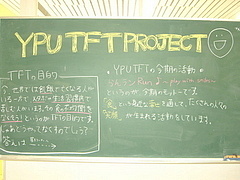 YPU TFT PROJECT
TFTの目的
今、世界では飢餓で亡くなる人が
いる一方で メタボや生活習慣病で
苦しむ人がいます。この食の不均衡を
なくそう!というのがTFTの目的です。
じゃあどうやってなくすのでしょう?
答えは
YPU TFTの今期の活動
というのが今期のモットーです。
食という最高な幸せを通して、たくさんの人の
笑顔が生まれる活動をしています。